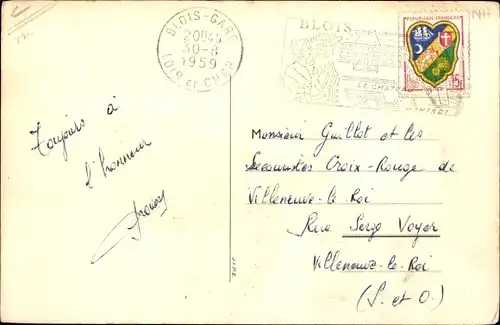 BLOIS-GARE
20H45
30-8
1959
LOIR ET CHER
BLOIS
LE CHATEAU
REPUBLIQUE FRANÇAISE
15F
Toujours à
l'honneur
Monsieur Guillot et les
Secouristes Croix-Rouge de
Villeneuve-le Roi
Rue Serg Voyer
Villeneuve-le-Roi
(S. et O.)